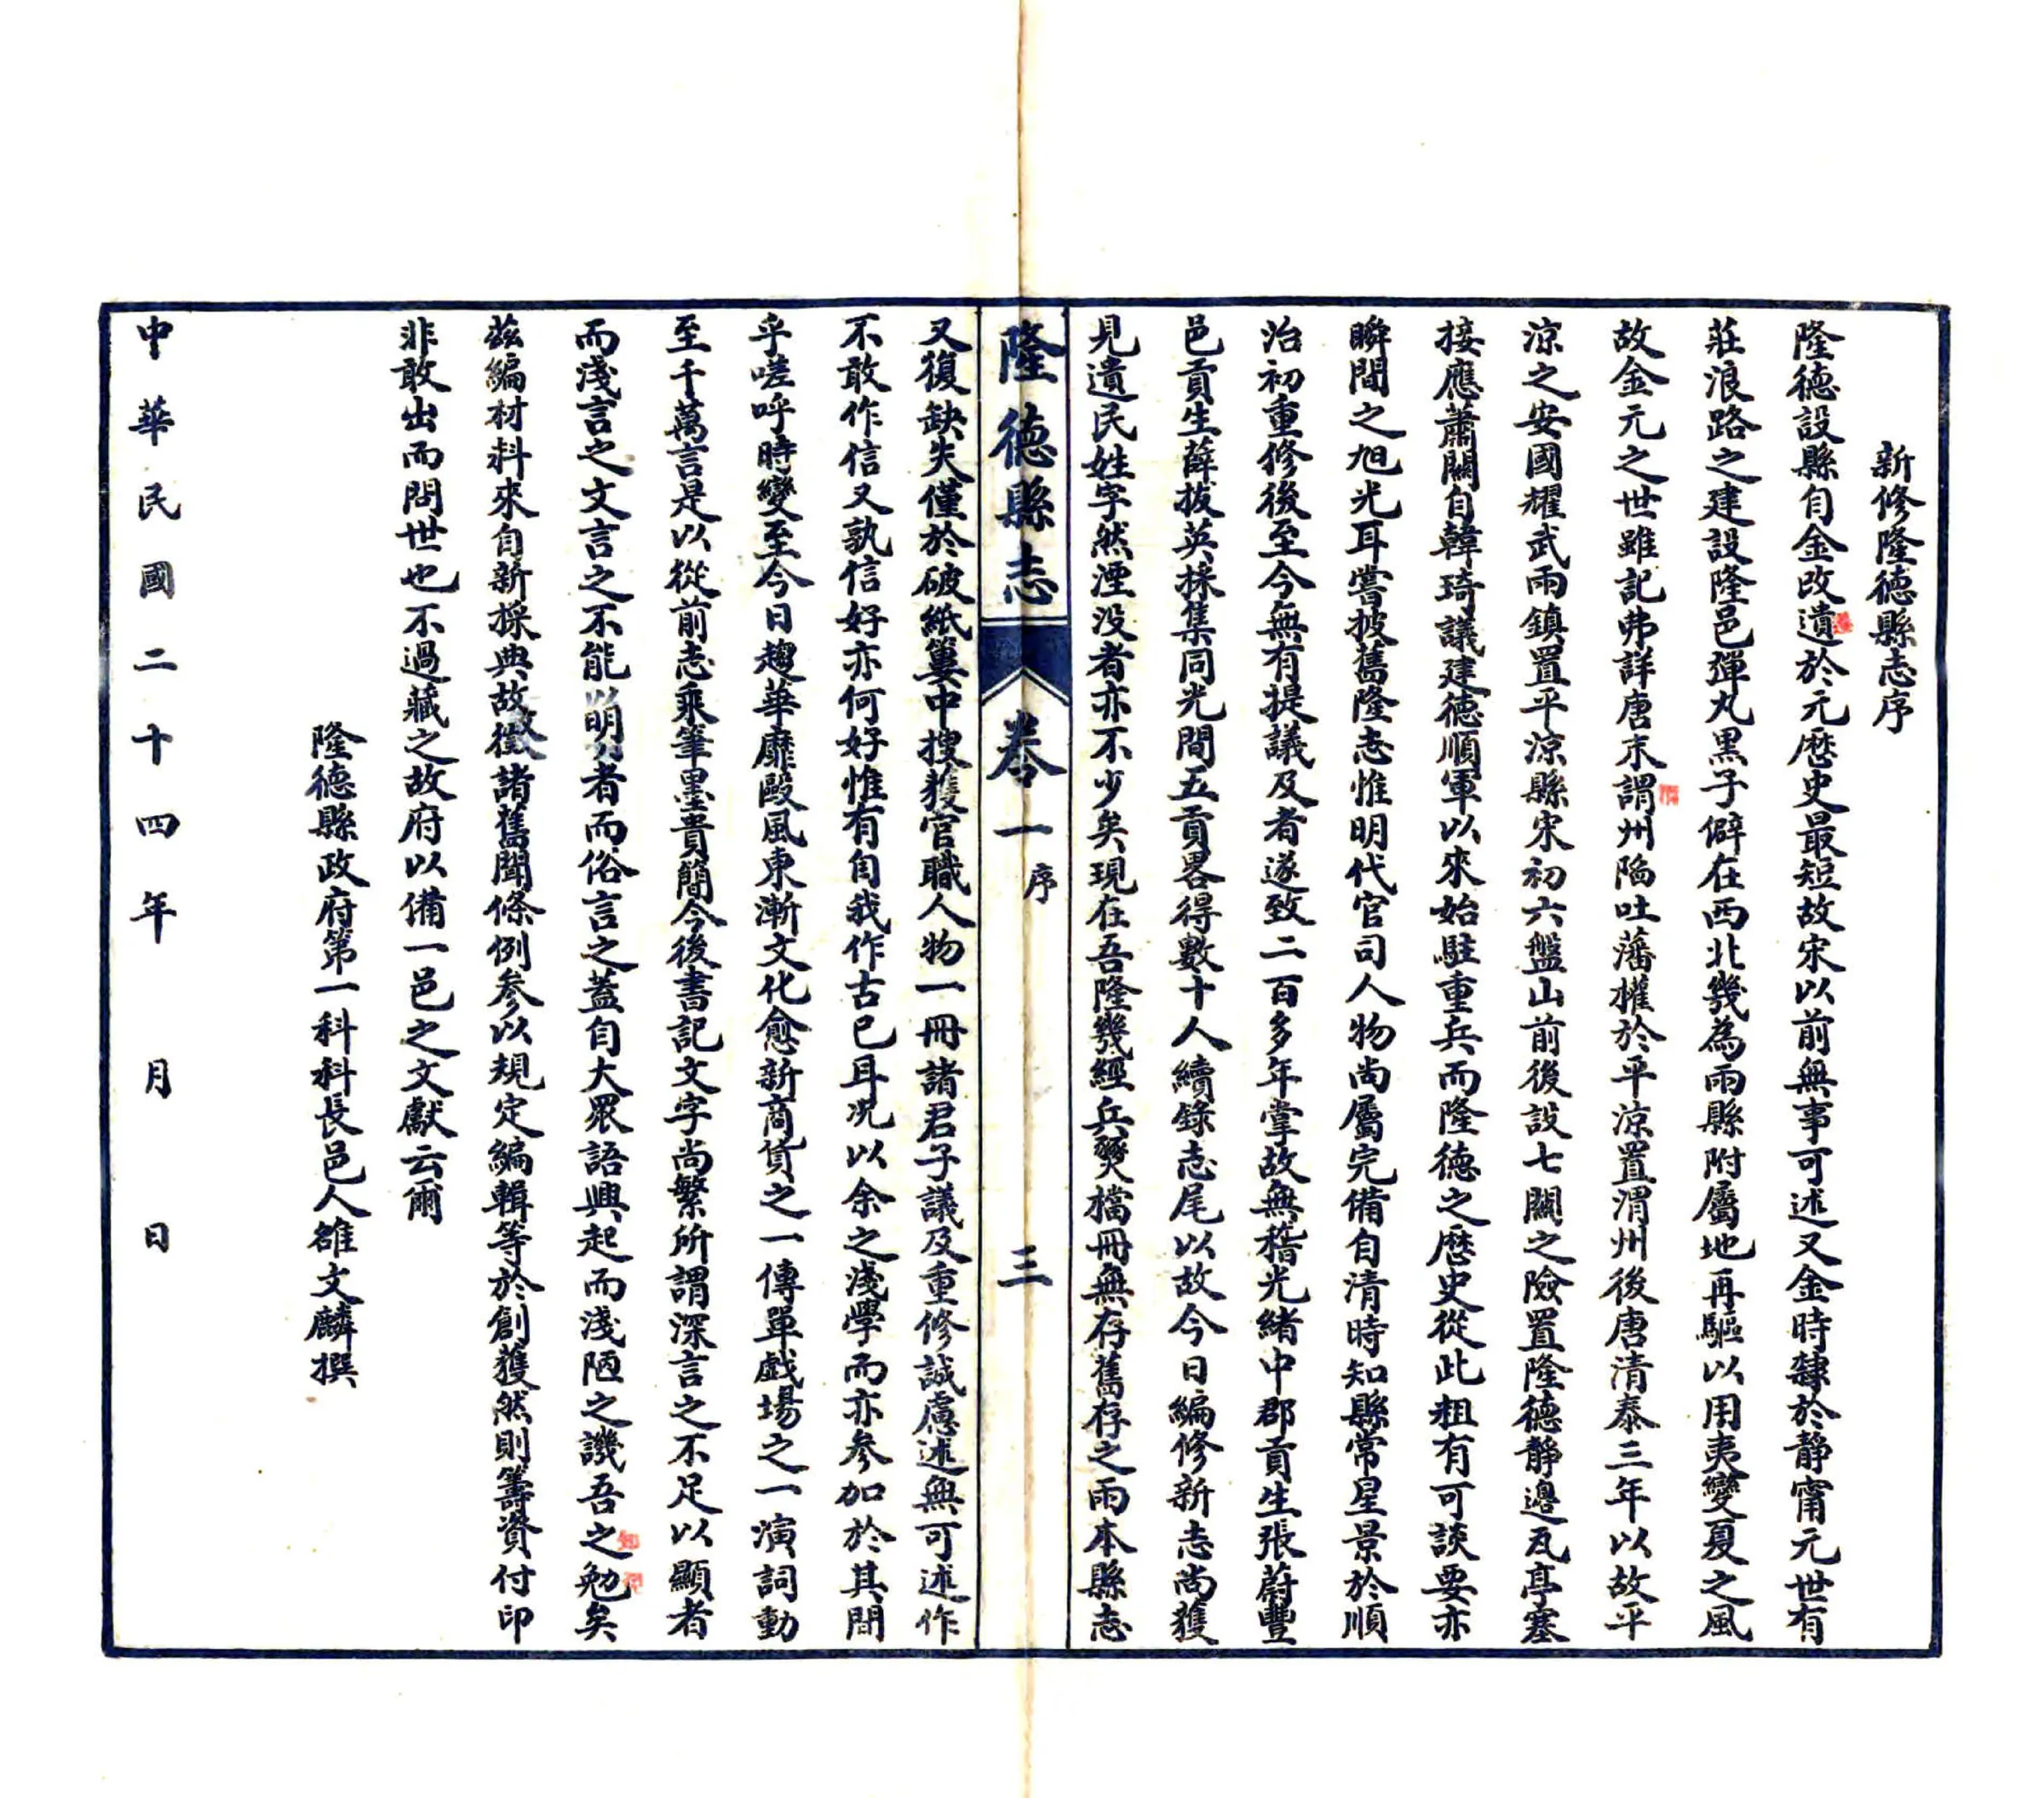 新修隆德縣志序
隆德設縣自金改遺於元歷史最短故宋以前無事可述又金時隸於靜甯元世有
莊浪路之建設隆邑彈丸黑子僻在西北幾為兩縣附屬地再驅以用夷變夏之風
故金元之世雖記弗詳唐末謂州陷吐藩權於平涼置渭州後唐清泰三年以故平
涼之安國耀武兩鎮置平涼縣宋初六盤山前後設七關之險置隆德靜邊瓦亭塞
接應蕭關自韓琦議建德順軍以來始駐重兵而隆德之歷史從此粗有可談要亦
瞬間之旭光耳嘗披舊隆志惟明代官司人物尚屬完備自清時知縣常星景於順
治初重修後至今無有提議及者遂致二百多年掌故無稽光緒中郡貢生張蔚豐
邑貢生薛拔英採集同光間五貢畧得數十人續錄志尾以故今日編修新志尚獲
見遺民姓字然湮没者亦不少矣現在吾隆幾經兵燹檔冊無存舊存之兩本縣志
隆德縣志 卷一 序 三
又復缺失僅於破紙簍中搜獲官職人物一冊諸君子議及重修誠慮述無可述作
不敢作信又孰信好亦何好惟有自我作古已耳况以余之淺學而亦參加於其間
乎嗟呼時變至今日趨華靡毆風東漸文化愈新商貨之一傳單戲場之一演詞動
至千萬言是以從前志乘筆墨貴簡今後書記文字尚繁所謂深言之不足以顯者
而淺言之文言之不能以明者而俗言之蓋自大眾語興起而淺陋之譏吾之勉矣
茲編材料來自新採典故徵諸舊聞條例參以規定編輯等於創獲然則籌資付印
非敢出而問世也不過藏之故府以備一邑之文獻云爾
隆德縣政府第一科科長邑人雒文麟撰
中華民國二十四年 月 日